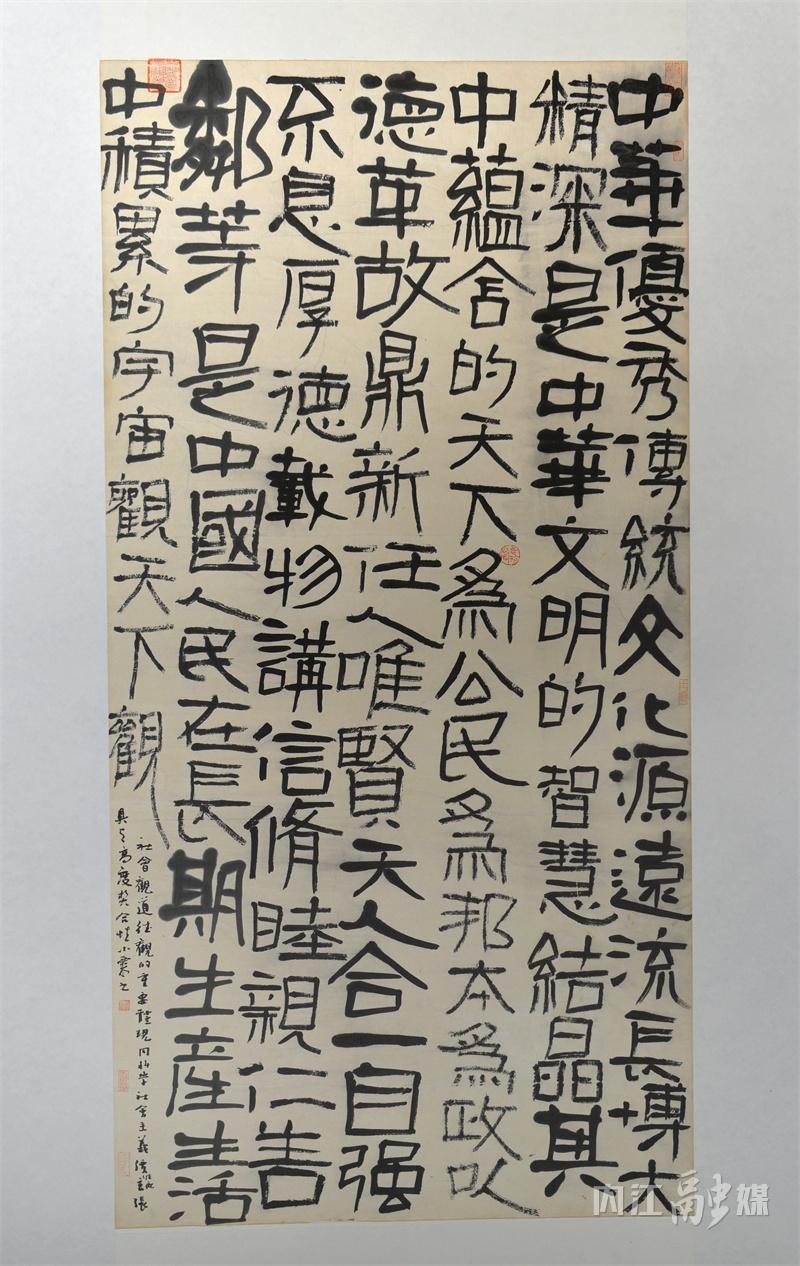 中華優秀傳統文化源遠流長博大
精深是中華文明的智慧結晶其
中蘊含的天下為公民為邦本為政以
德革故鼎新任人唯賢天人合一自强
不息厚德載物講信脩睦親仁善
鄰等是中國人民在長期生產生活
中積累的宇宙觀天下觀
社會觀道德觀的重要體現同科學社會主義價值觀主張
具有高度契合性
内江融媒